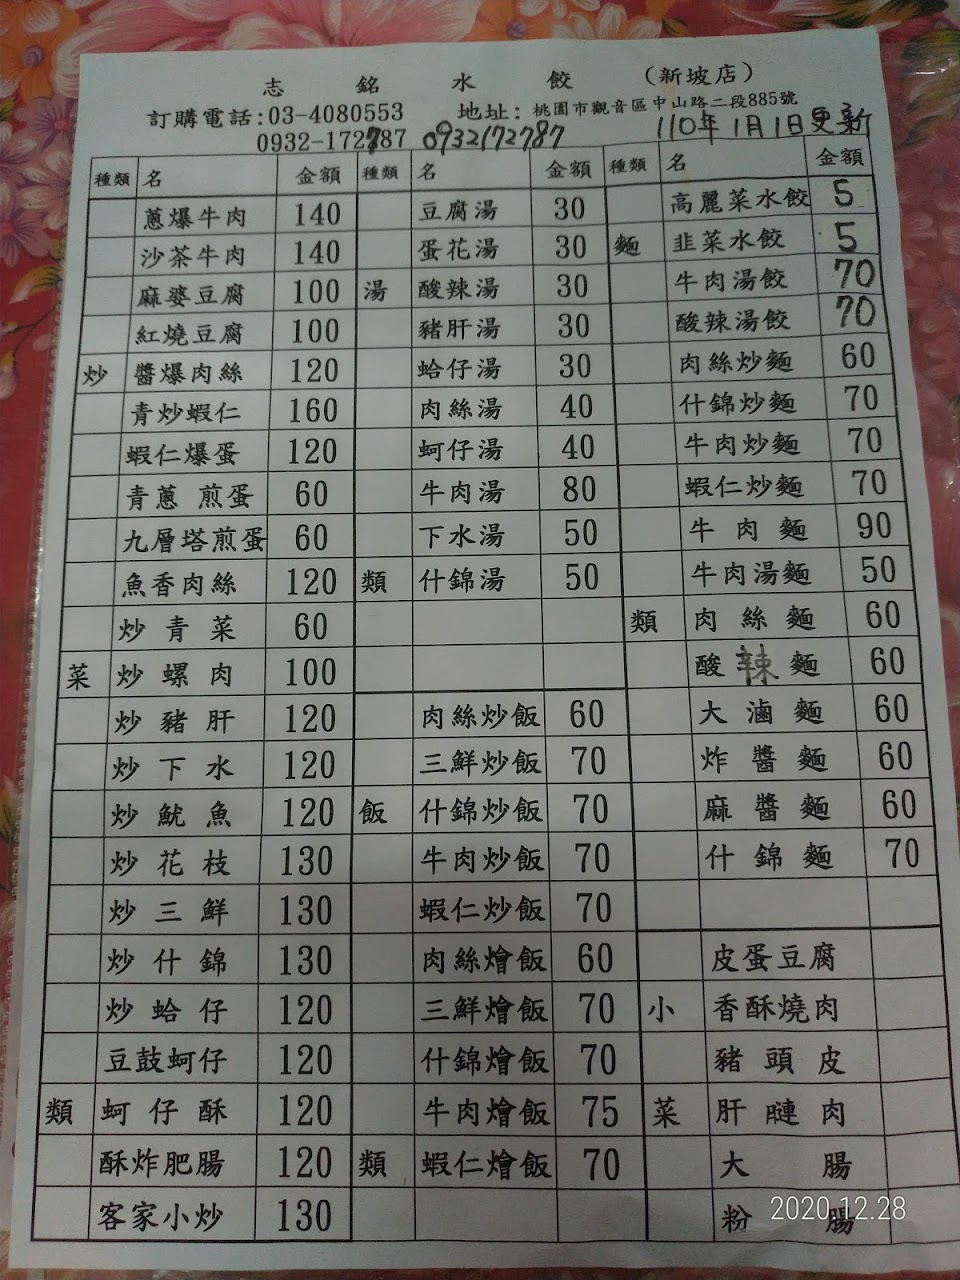 志 銘 水 餃 (新坡店)
訂購電話:03-4080553 地址: 桃園市觀音區中山路二段885號
0932-172787 0932172787 110年1月1日更新
種類 名 金額 種類 名 金額 種類 名 金額
蔥爆牛肉 140 豆腐湯 30 高麗菜水餃 5
沙茶牛肉 140 蛋花湯 30 麵 韭菜水餃 5
麻婆豆腐 100 湯 酸辣湯 30 牛肉湯餃 70
紅燒豆腐 100 豬肝湯 30 酸辣湯餃 70
炒 醬爆肉絲 120 蛤仔湯 30 肉絲炒麵 60
青炒蝦仁 160 肉絲湯 40 什錦炒麵 70
蝦仁爆蛋 120 蚵仔湯 40 牛肉炒麵 70
青蔥 煎蛋 60 牛肉湯 80 蝦仁炒麵 70
九層塔煎蛋 60 下水湯 50 牛 肉 麵 90
魚香肉絲 120 類 什錦湯 50 牛肉湯麵 50
炒 青 菜 60 類 肉 絲 麵 60
菜 炒 螺 肉 100 酸 辣 麵 60
炒 豬 肝 120 肉絲炒飯 60 大 滷 麵 60
炒 下 水 120 三鮮炒飯 70 炸 醬 麵 60
炒 魷 魚 120 飯 什錦炒飯 70 麻 醬 麵 60
炒 花 枝 130 牛肉炒飯 70 什 錦 麵 70
炒 三 鮮 130 蝦仁炒飯 70
炒 什 錦 130 肉絲燴飯 60 皮蛋豆腐
炒 蛤 仔 120 三鮮燴飯 70 小 香酥燒肉
豆鼓蚵仔 120 什錦燴飯 70 豬 頭 皮
類 蚵 仔 酥 120 牛肉燴飯 75 菜 肝 瞇 肉
酥炸肥腸 120 類 蝦仁燴飯 70 大 腸
客家小炒 130 粉 腸
2020.12.28